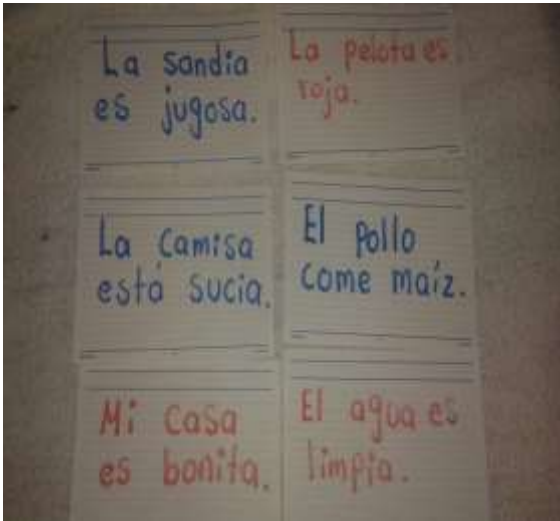 La sandia
es jugosa.
La pelota es
roja.
La camisa
está sucia.
El pollo
come maíz.
Mi casa
es bonita.
El agua es
limpia.